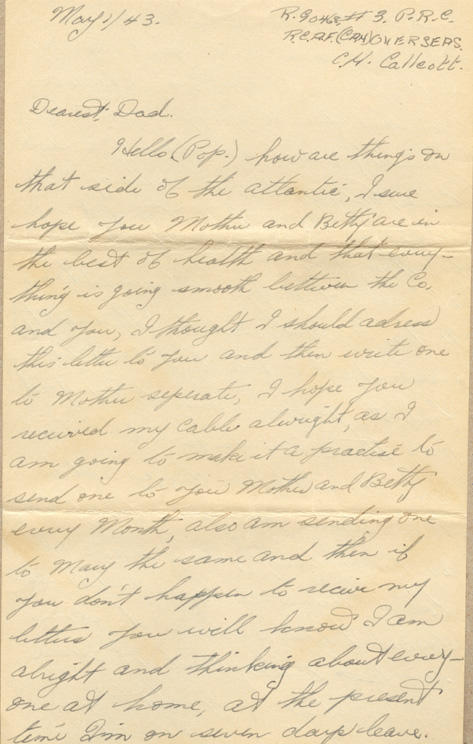 May 1/43.
R.90408 # 3. P.R.C.
R.C.A.F. (CAN) OVERSEAS.
C.H. Callcott.
Dearest Dad.
Hello (Pop.) how are things on
that side of the atlantic, I sure
hope you Mother and Betty are in
the best of health and that every-
thing is going smooth between the Co.
and you, I thought I should adress
this letter to you and then write one
to Mother seperate, I hope you
recieved my cable alwright, as I
am going to make it a practise to
send one to you Mother and Betty
every Month, also am sending one
to Mary the same and then if
you don't happen to recive my
letters you will know I am
alright and thinking about every-
one at home, at the present
time I'm on seven days leave.